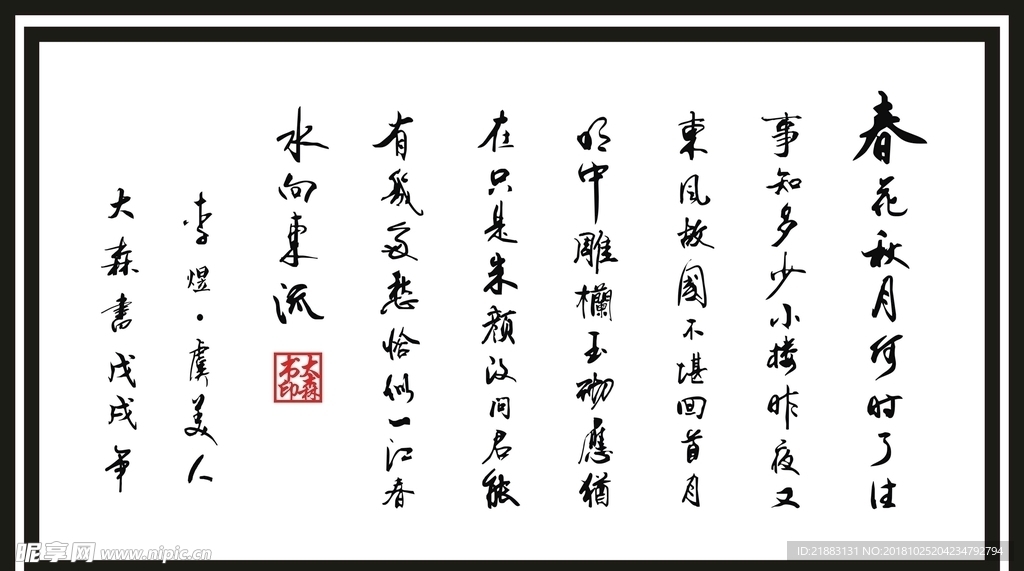 春花秋月何时了往
事知多少小楼昨夜又
東风故國不堪回首月
明中雕欄玉砌應猶
在只是朱颜改问君能
有幾多愁恰似一江春
水向東流
李煜·虞美人
大森書戊戌年
大森书印
昵享网 www.nipic.cn
ID:21883131 NO:20181025204234792794